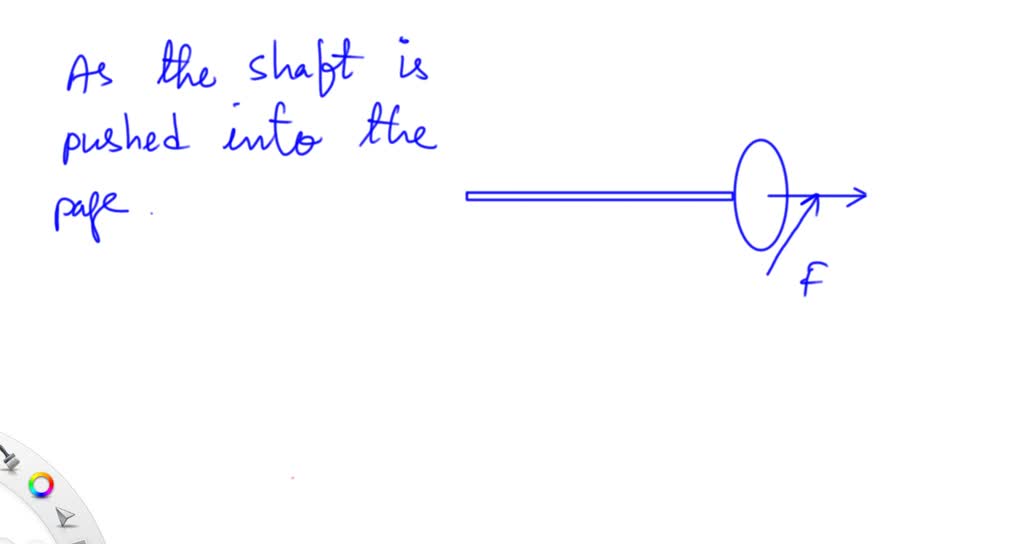 As the shaft is
pushed into the
page.
F